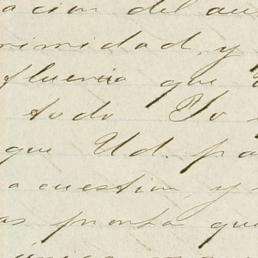 acion del au
rimidad, y
fluencia que
todo Yo
que Ud. pa
a cuestion, y
as pronto que